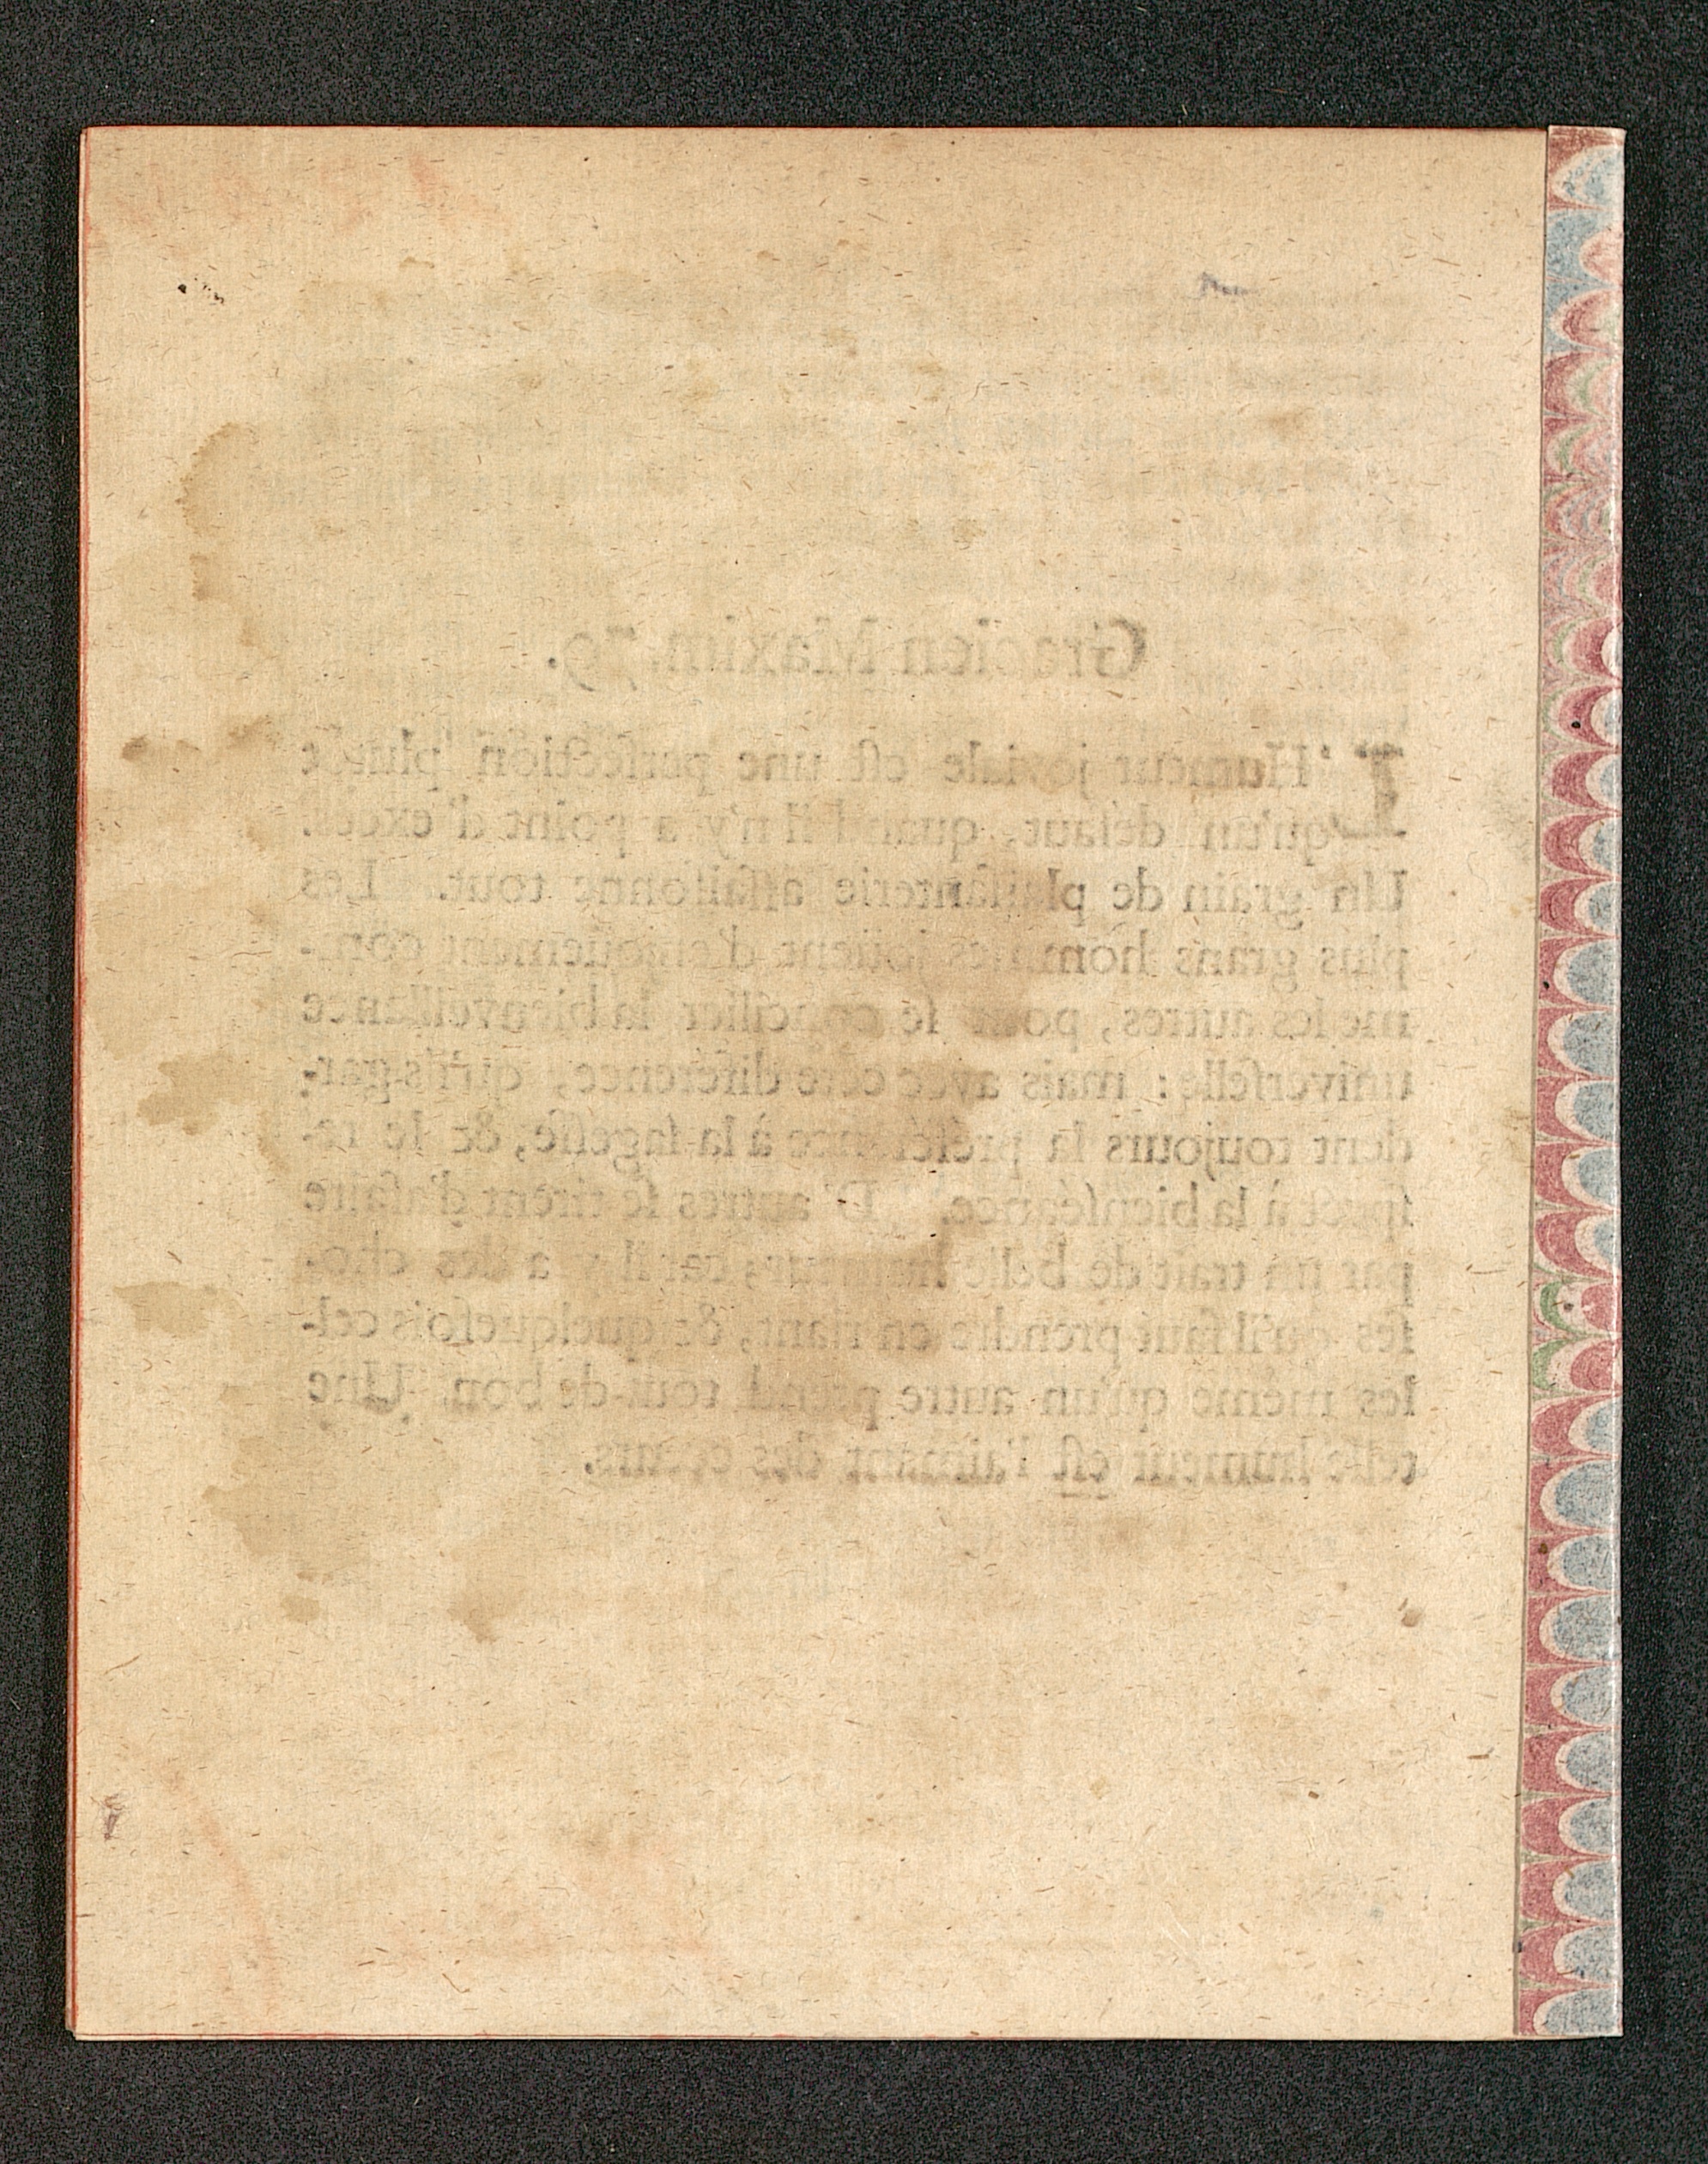 Gracien Maxim. 79.
L'Humeur joviale est une perfection plutôt
qu'un défaut, quand il n'y a point d'excès.
Un grain de plaisanterie assaisonne tout. Les
plus grans hommes joüent d'enjoüement com-
me les autres, pour se concilier la bienveillance
universelle : mais avec cete diférence, qu'ils gar-
dent toujours la préférence à la sagesse, & le re-
spect à la bienséance. D'autres se tirent d'afaire
par un trait de belle humeur ; car il y a des cho-
ses qu'il faut prendre en riant, & quelquefois cel-
les même qu'un autre prend tout-de-bon. Une
telle humeur est l'aimant des cœurs.